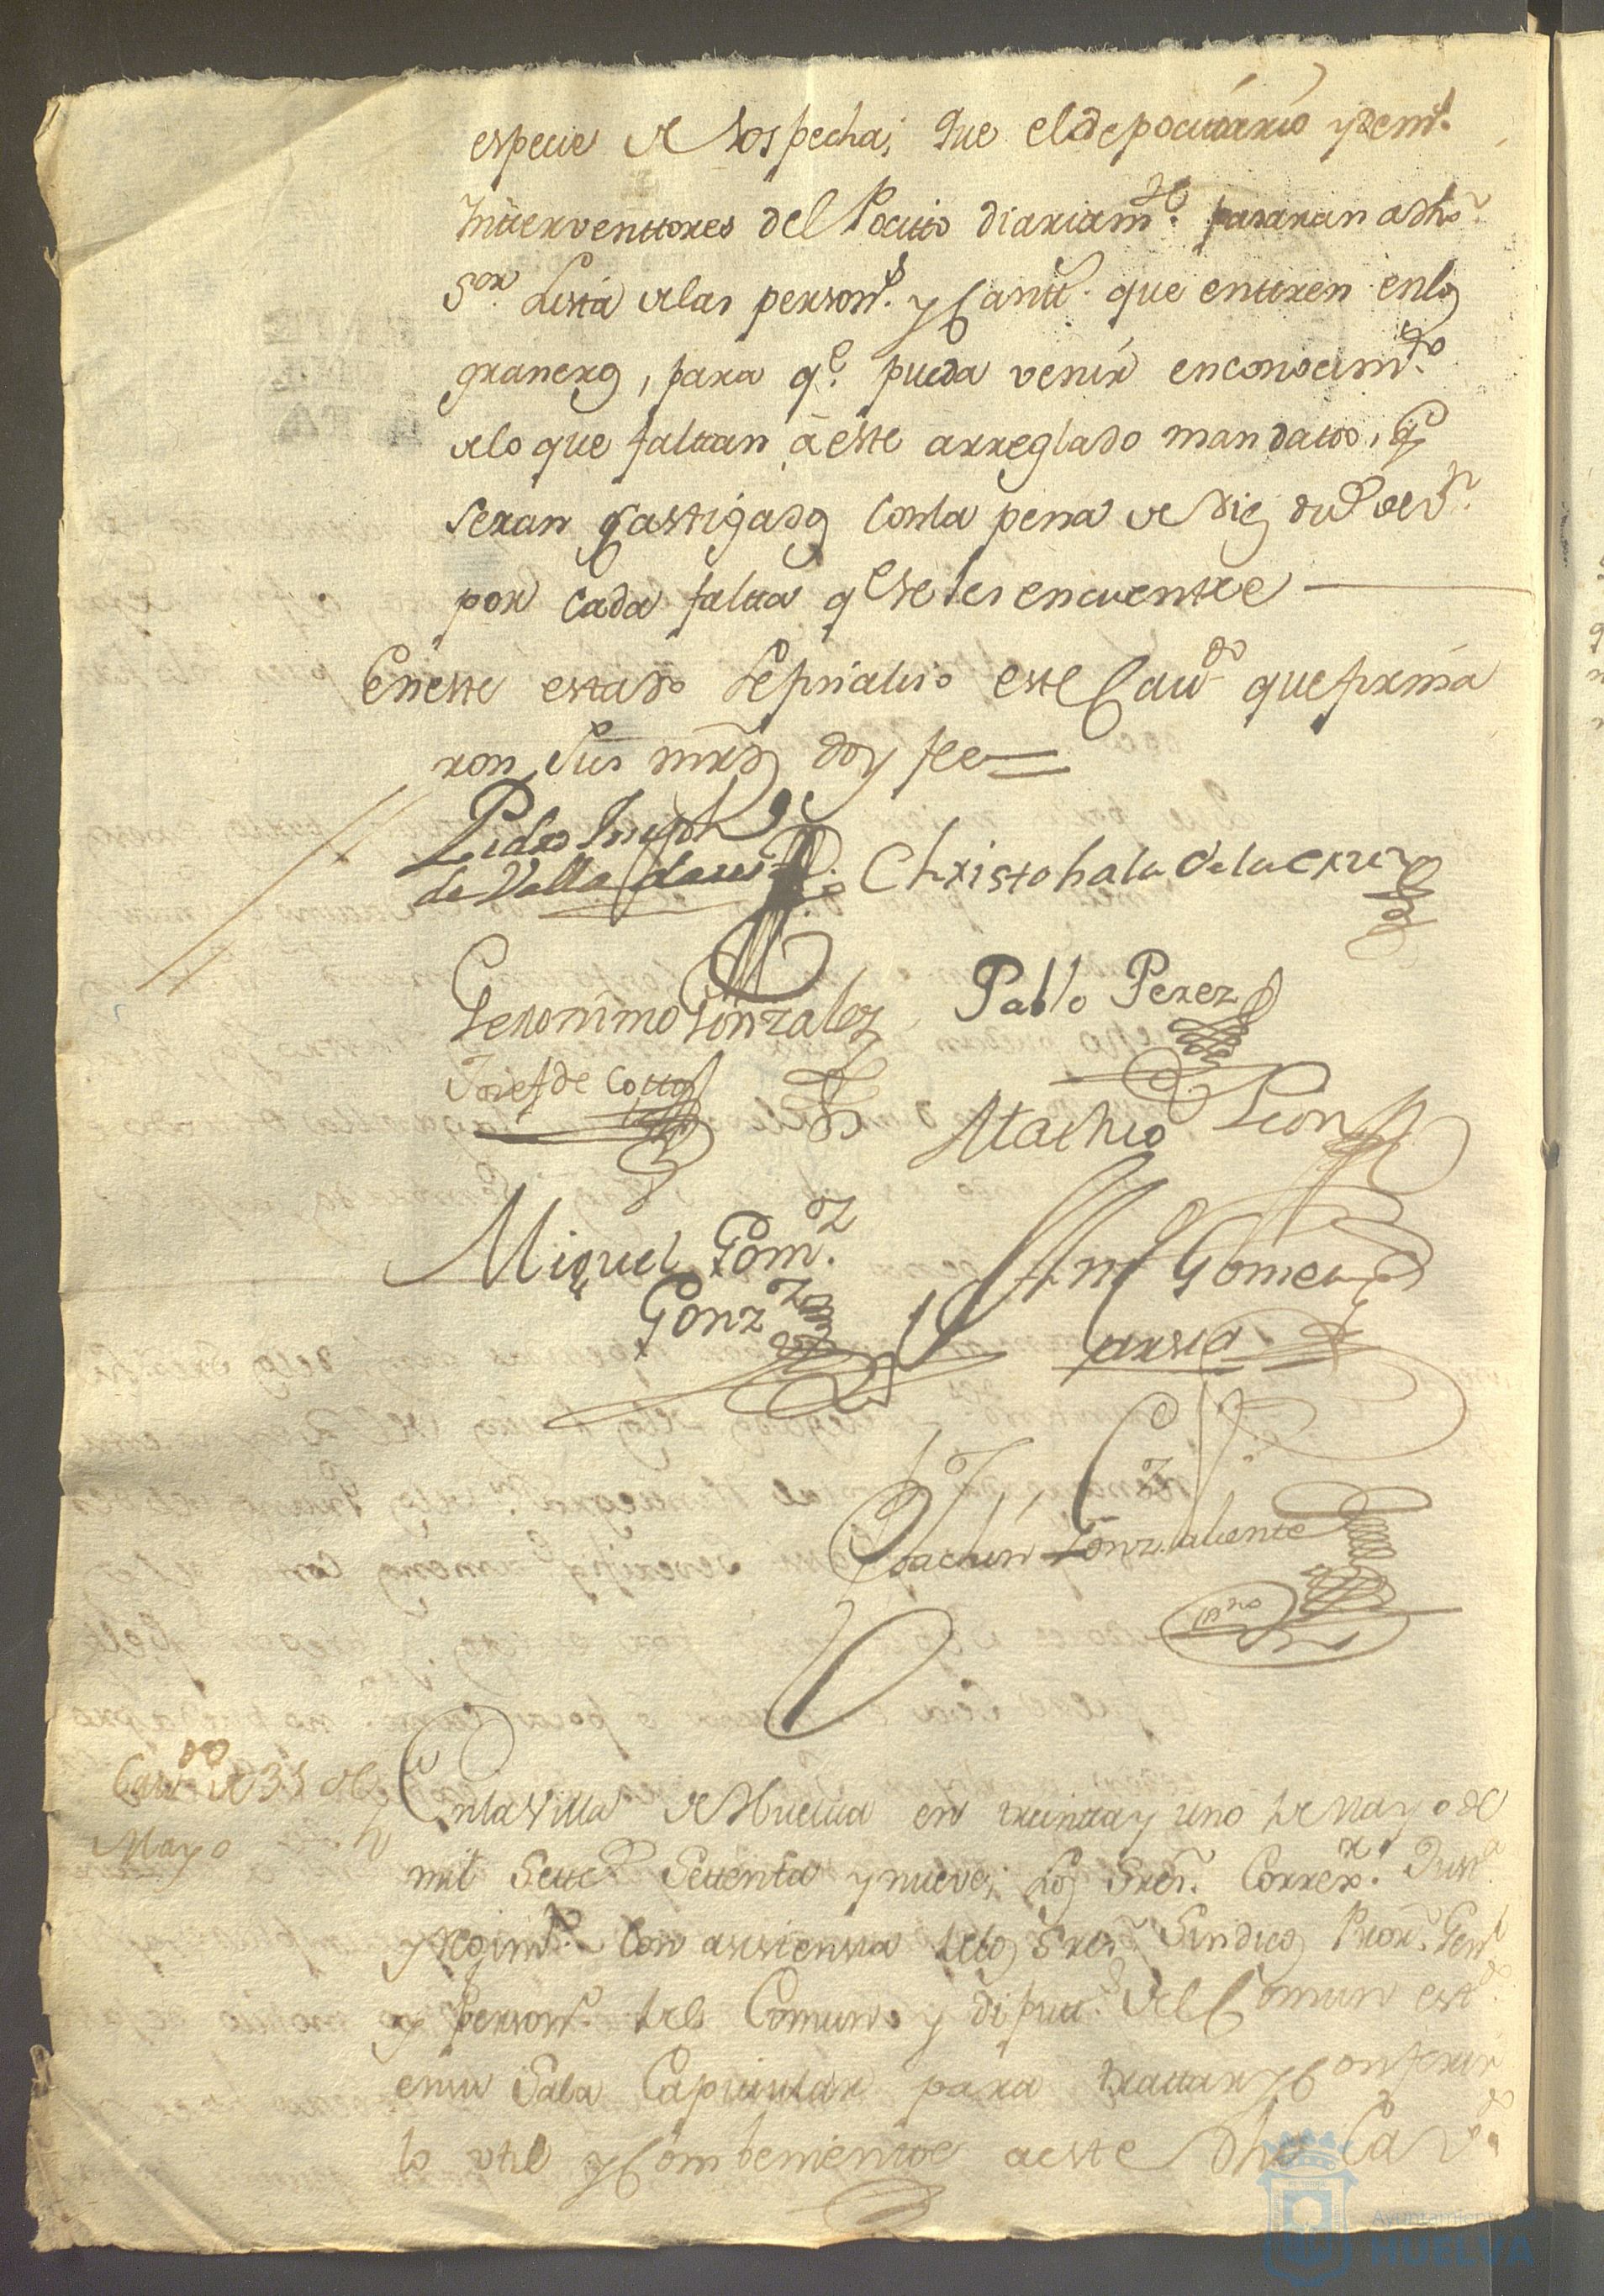 especie de sospecha; que el depocitario y dem.s
Ynterventtores del Pocito diariam.te pasaran a dho
S.or Lista de las person.s y Cantt.s que enttren en los
graneros, para q.e pueda venir en conosim.to
de lo que faltan â este arreglado mandatto, q.e
seran gastigados con la pena de diez du.s de v.n
por cada falta q.e se les encuentre
En este estado se finalisó este Cav.do que firma
ron sus mrds doy fee
Pedro Joseph
de Valladares
Christobal de la Cruz
Geronimo Gonzalez
Pablo Perez
Josef de Cotto
Leon
Miguel Gom.z
Gonz.z
Gomez
Garsia
Joachin Gonz.z
ss.no
Cav.do de 31 de
Mayo
En la Villa de Huelva en treinta y uno de Mayo de
mil Settec.s Settenta y nueve; los Sres. Correx.r Just.a
y Regim.to con asistensia de los Sres. Sindicos Pror. Gen.l
y Person.o del Comun y diputt.s del Comun est.do
en su Sala Capitular para trattar y Conferir
lo util y Combeniente a este dho Cav.do
Ayuntamiento
HUELVA